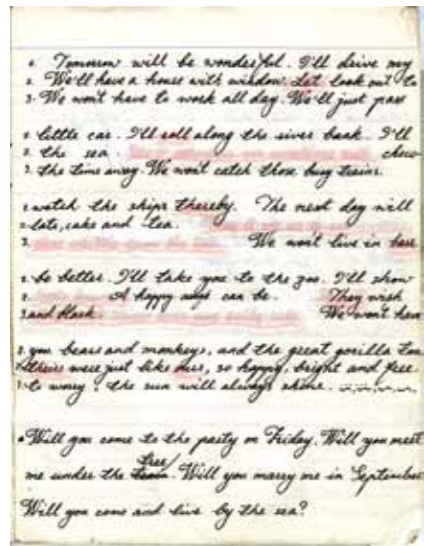 1. Tomorrow will be wonderful. I'll drive my
2. We'll have a house with window. Let look out to
3. We won't have to work all day. We'll just pass
1. little car. I'll roll along the river bank. I'll
2. the sea. choco
3. the time away. We won't catch those busy trains
1. watch the ships thereby. The next day will
2. late, cake and tea.
3. We won't live in
1. be better. I'll take you to the zoo. I'll show
2. A happy can be. They wish
3. and black. We won't have
1. you bears and monkeys, and the great gorilla too
2. theirs were just like ours, so happy, bright and free
3. to worry, the sun will always shine.
Will you come to the party on Friday. Will you meet
me under the tree. Will you marry me in September
Will you come and live by the sea?